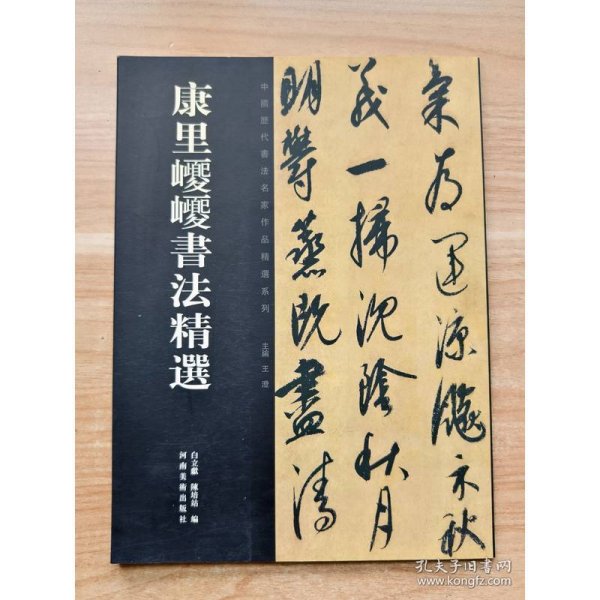 氣為運涼飈示秋
一掃沉陰秋月
明鬱蒸既盡清
中國歷代書法名家作品精選系列 主編 王澄
康里巎巎書法精選
白立獻 陳培站 編
河南美術出版社
孔夫子旧书网
www.kongfz.com